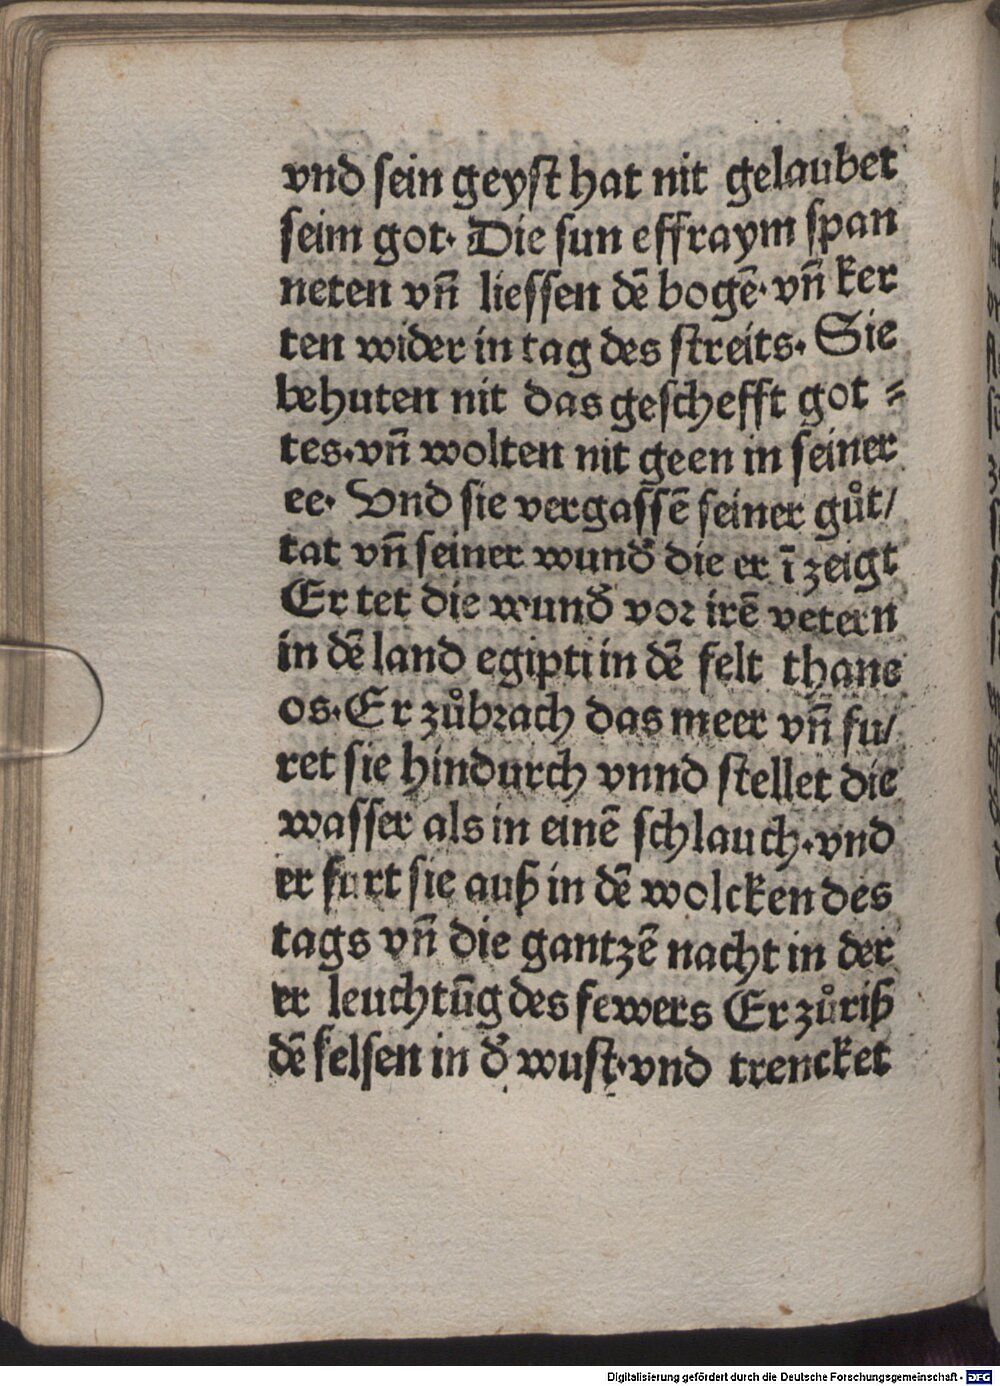 vnd sein geyst hat nit gelaubet
seim got. Die sun effraym span
neten vn̄ liessen dē bogē. vn̄ ker
ten wider in tag des streits. Sie
behuten nit das geschefft got =
tes. vn̄ wolten nit geen in seiner
ee. Vnd sie vergassē seiner gůt/
tat vn̄ seiner wund̕ die er ī zeigt
Er tet die wund̕ vor irē vetern
in dē land egipti in dē felt thane
os. Er zůbrach das meer vn̄ fu/
ret sie hindurch vnnd stellet die
wasser als in einē schlauch. vnd
er furt sie auß in dē wolcken des
tags vn̄ die gantzē nacht in der
er leuchtūg des fewers Er zůriß
dē felsen in d̕ wust. vnd trencket
Digitalisierung gefördert durch die Deutsche Forschungsgemeinschaft - DFG